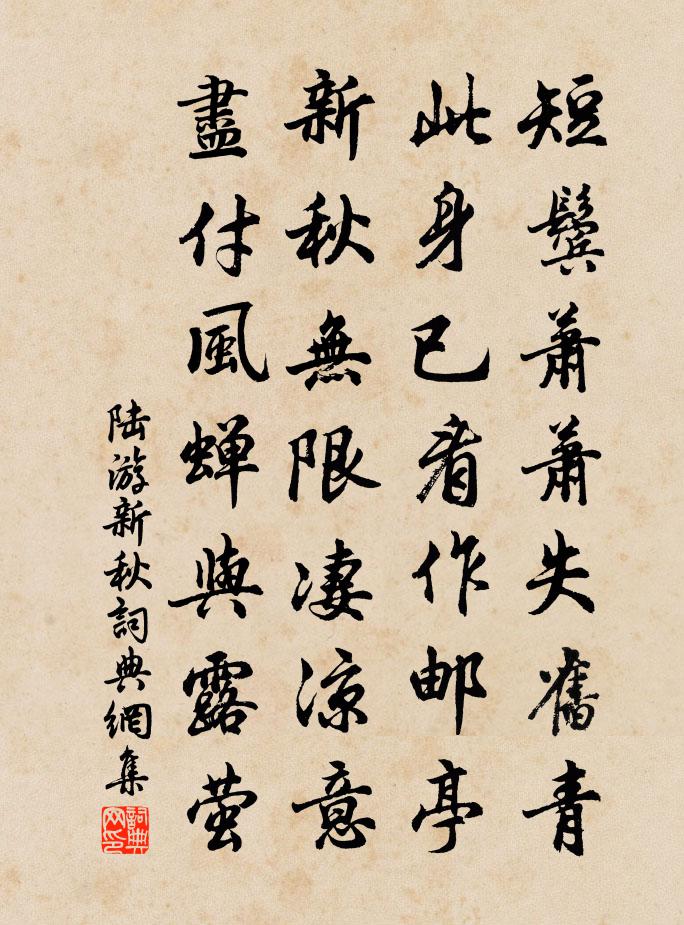 短鬢蕭蕭失舊青
此身已看作邮亭
新秋無限凄涼意
盡付風蝉與露萤
陆游新秋詞典網集
詞典网印